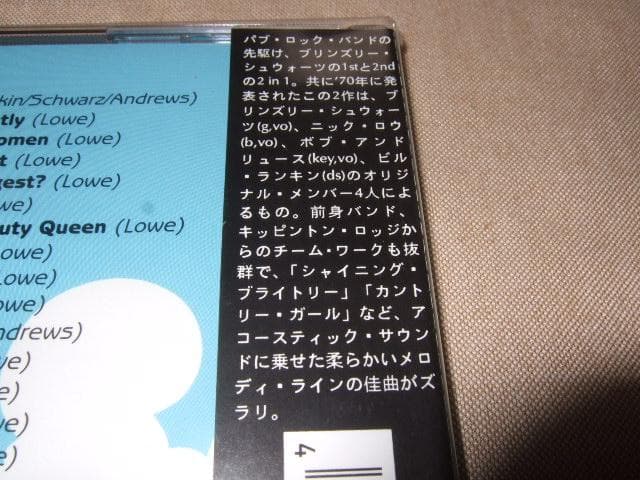 kin/Schwarz/Andrews)
tly (Lowe)
omen (Lowe)
t (Lowe)
gest? (Lowe)
we)
uty Queen (Lowe)
owe)
Lowe)
owe)
ndrews)
we)
e)
we)
e)
パブ・ロック・バンドの
先駆け、ブリンズリー・
シュウォーツの1stと2nd
の2 in 1。共に'70年に発
表されたこの2作は、ブ
リンズリー・シュウォー
ツ(g,vo)、ニック・ロウ
(b,vo)、ボブ・アンド
リュース(key,vo)、ビル
・ランキン(ds)のオリジ
ナル・メンバー4人によ
るもの。前身バンド、
キッピントン・ロッジか
らのチーム・ワークも抜
群で、「シャイニング・
ブライトリー」「カント
リー・ガール」など、ア
コースティック・サウン
ドに乗せた柔らかいメロ
ディ・ラインの佳曲がズ
ラリ。
4